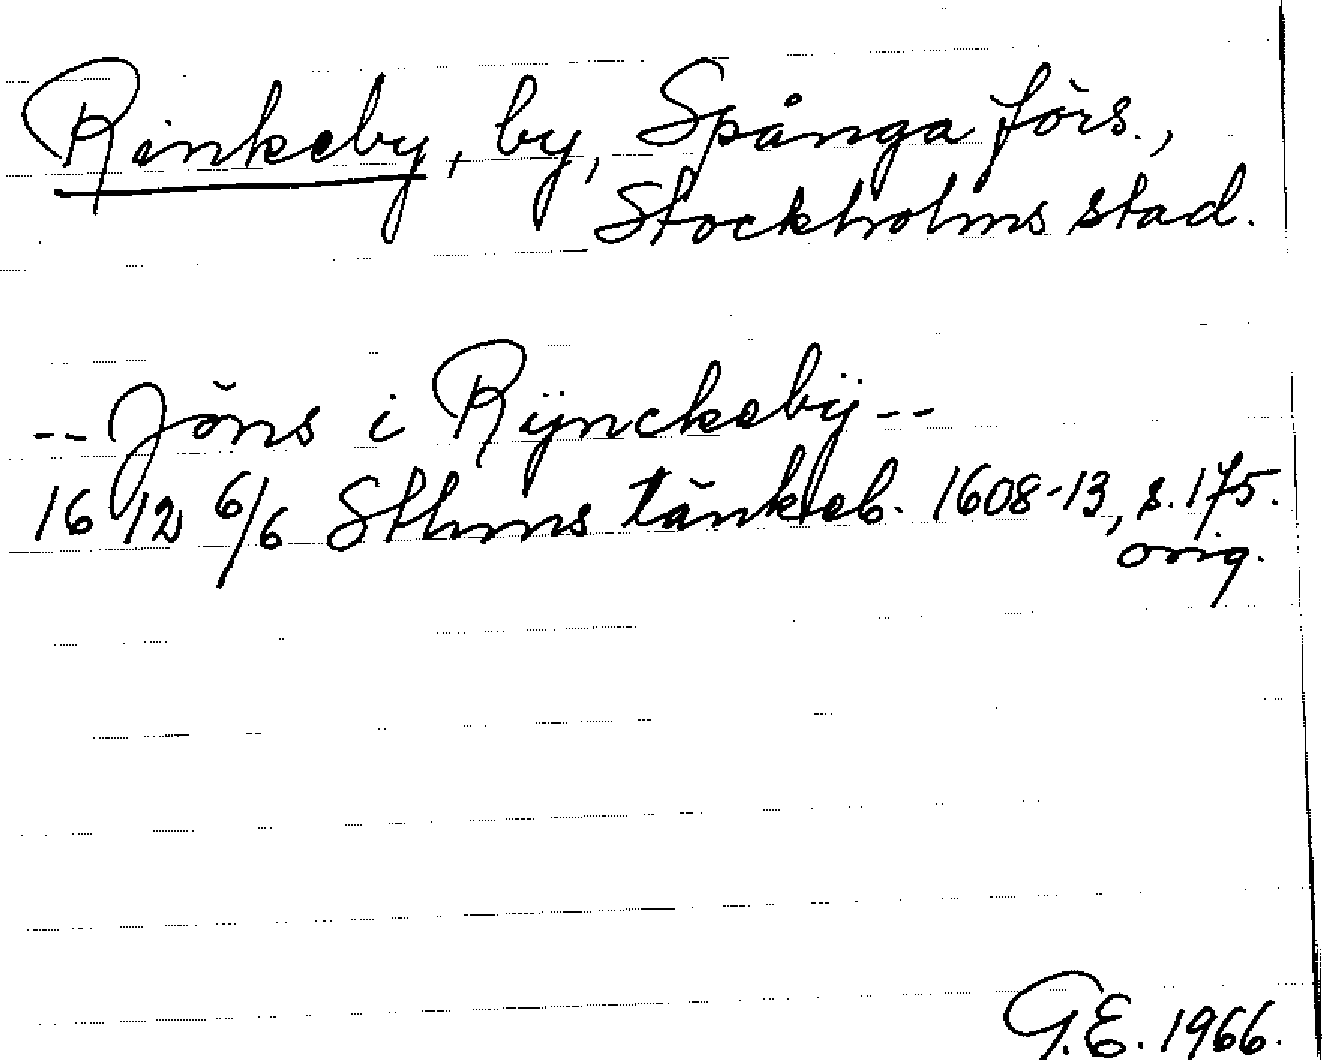 Rinkeby, by, Spånga förs.,
Stockholms stad.
-- Jöns i Rÿnckebÿ --
1612 6/6 Sthms tänkeb. 1608-13, s. 175.
orig.
G.E. 1966.